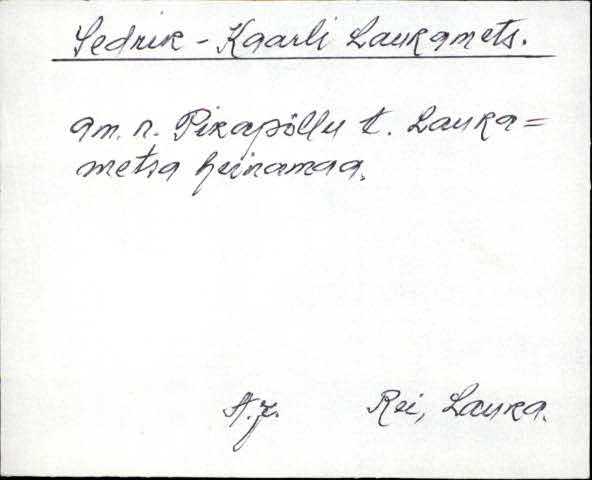 Sedrik-Kaarli Laukamets.
am. n. Pikapõllu t. Lauka=
metsa heinamaa.
A.J. Rei, Lauka.